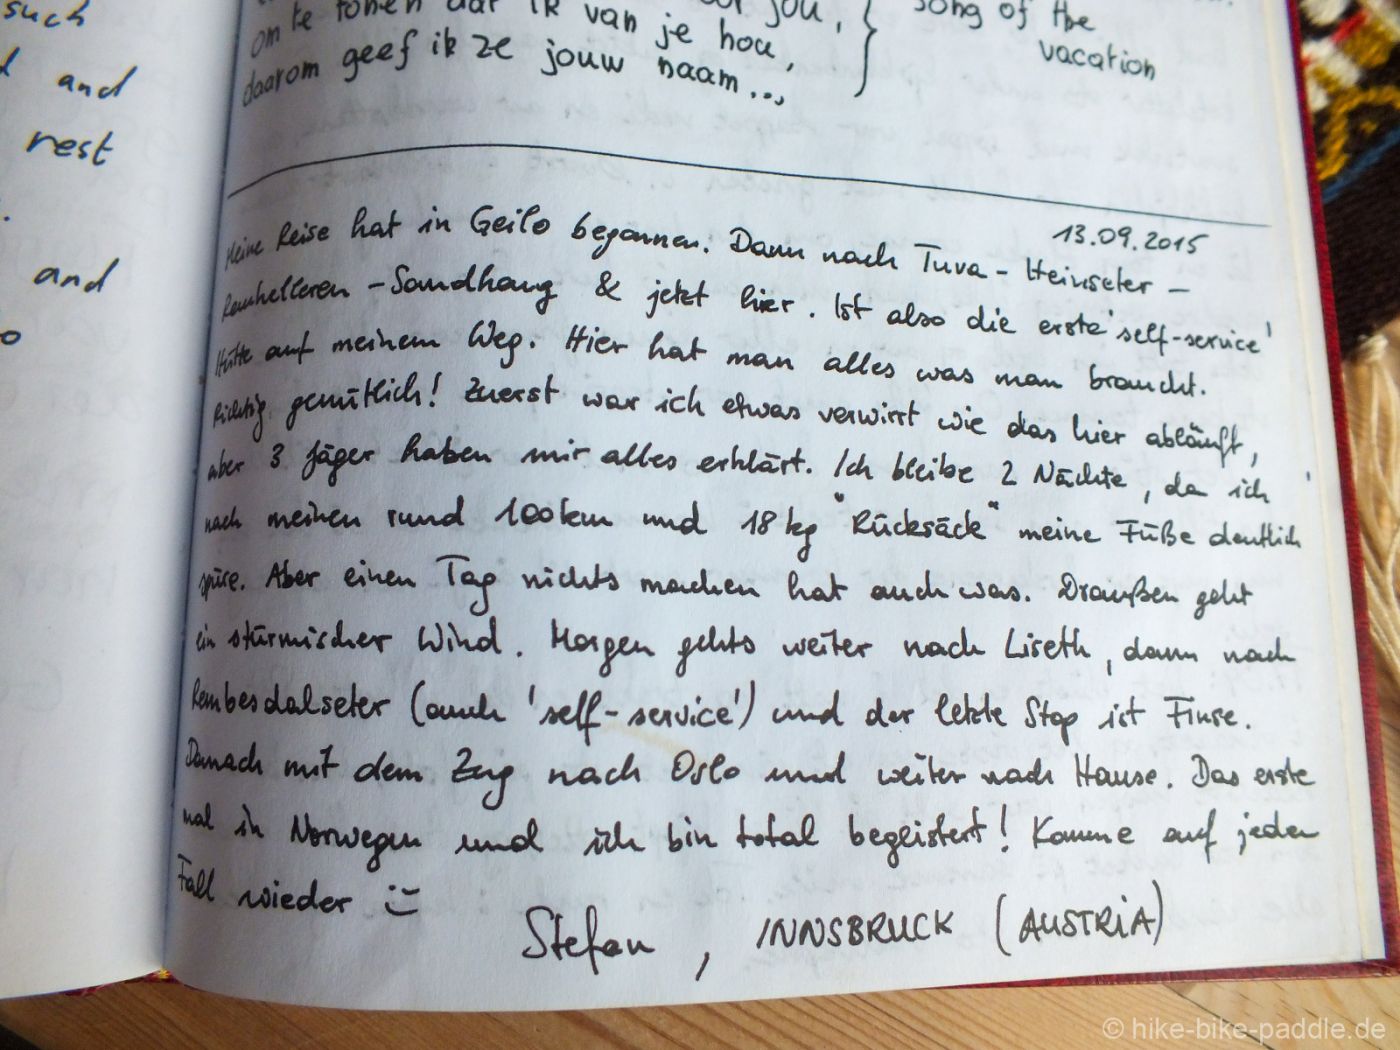 such
and
rest
and
om te tonen dat ik van je hou,
daarom geef ik ze jouw naam...
song of the
vacation
13.09.2015
Meine Reise hat in Geilo begonnen. Dann nach Tuva - Heinseter -
Rauhelleren - Sandhaug & jetzt hier. Ist also die erste 'self-service'
Hütte auf meinem Weg. Hier hat man alles was man braucht.
Richtig gemütlich! Zuerst war ich etwas verwirrt wie das hier abläuft,
aber 3 Jäger haben mir alles erklärt. Ich bleibe 2 Nächte, da ich
nach meinen rund 100km und 18kg "Rücksäck" meine Füße deutlich
spüre. Aber einen Tag nichts machen hat auch was. Draußen geht
ein stürmischer Wind. Morgen gehts weiter nach Liseth, dann nach
Rembesdalseter (auch 'self-service') und der letzte Stop ist Finse.
Danach mit dem Zug nach Oslo und weiter nach Hause. Das erste
mal in Norwegen und ich bin total begeistert! Komme auf jeden
Fall wieder :)
Stefan, INNSBRUCK (AUSTRIA)
© hike-bike-paddle.de